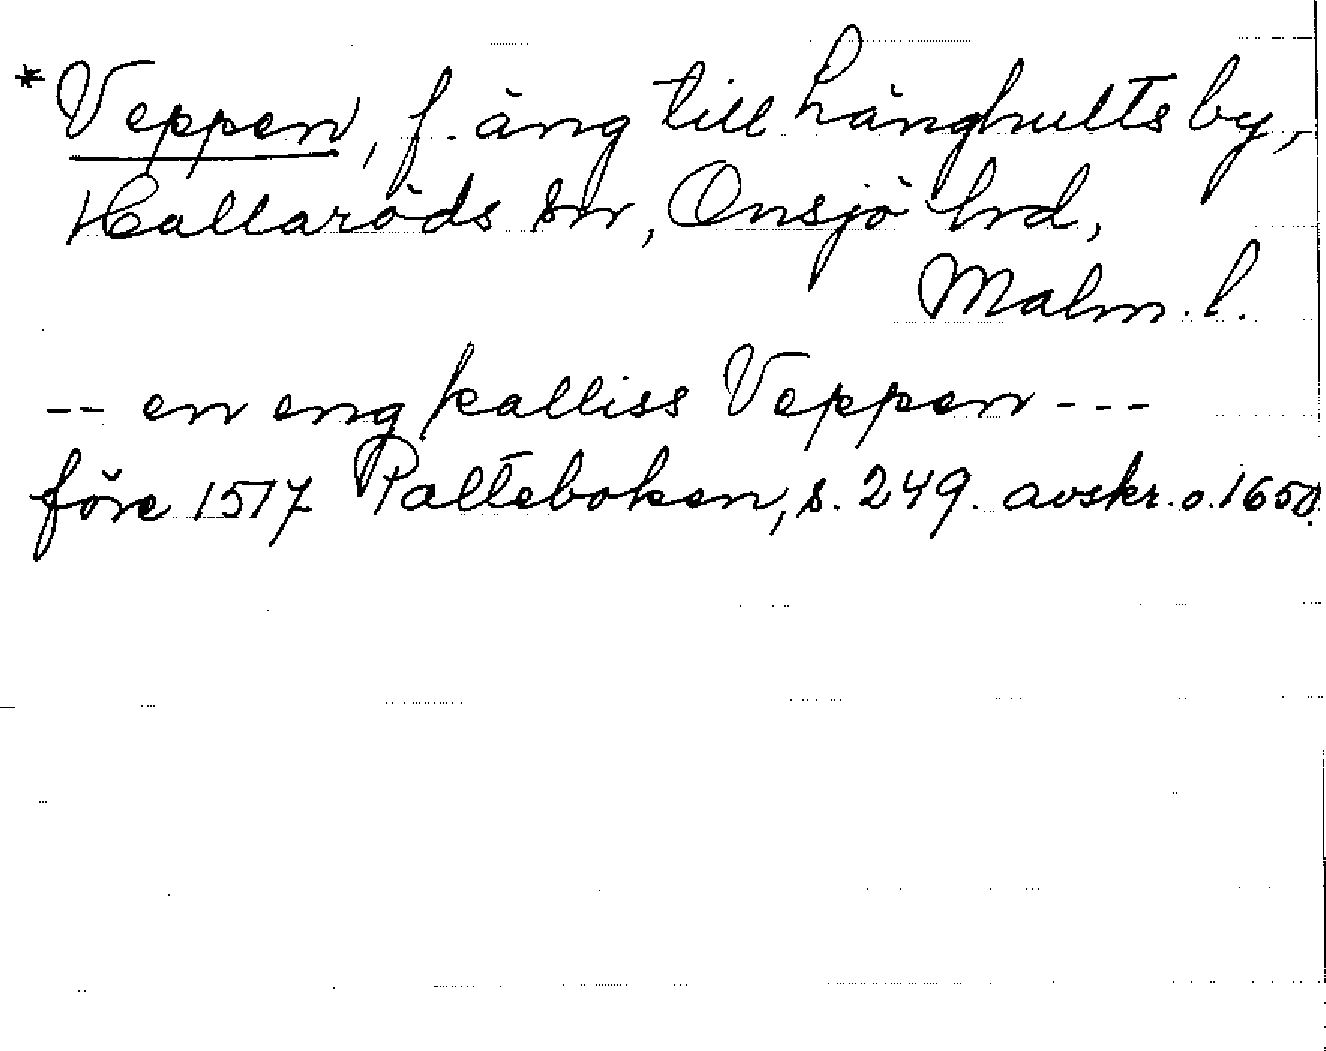 *Veppen, f. äng till Långhults by,
Hallaröds sn, Onsjö hd,
Malm. l.
-- en eng kalliss Veppen ---
före 1517 Palteboken, s. 249. avskr. o. 1650.